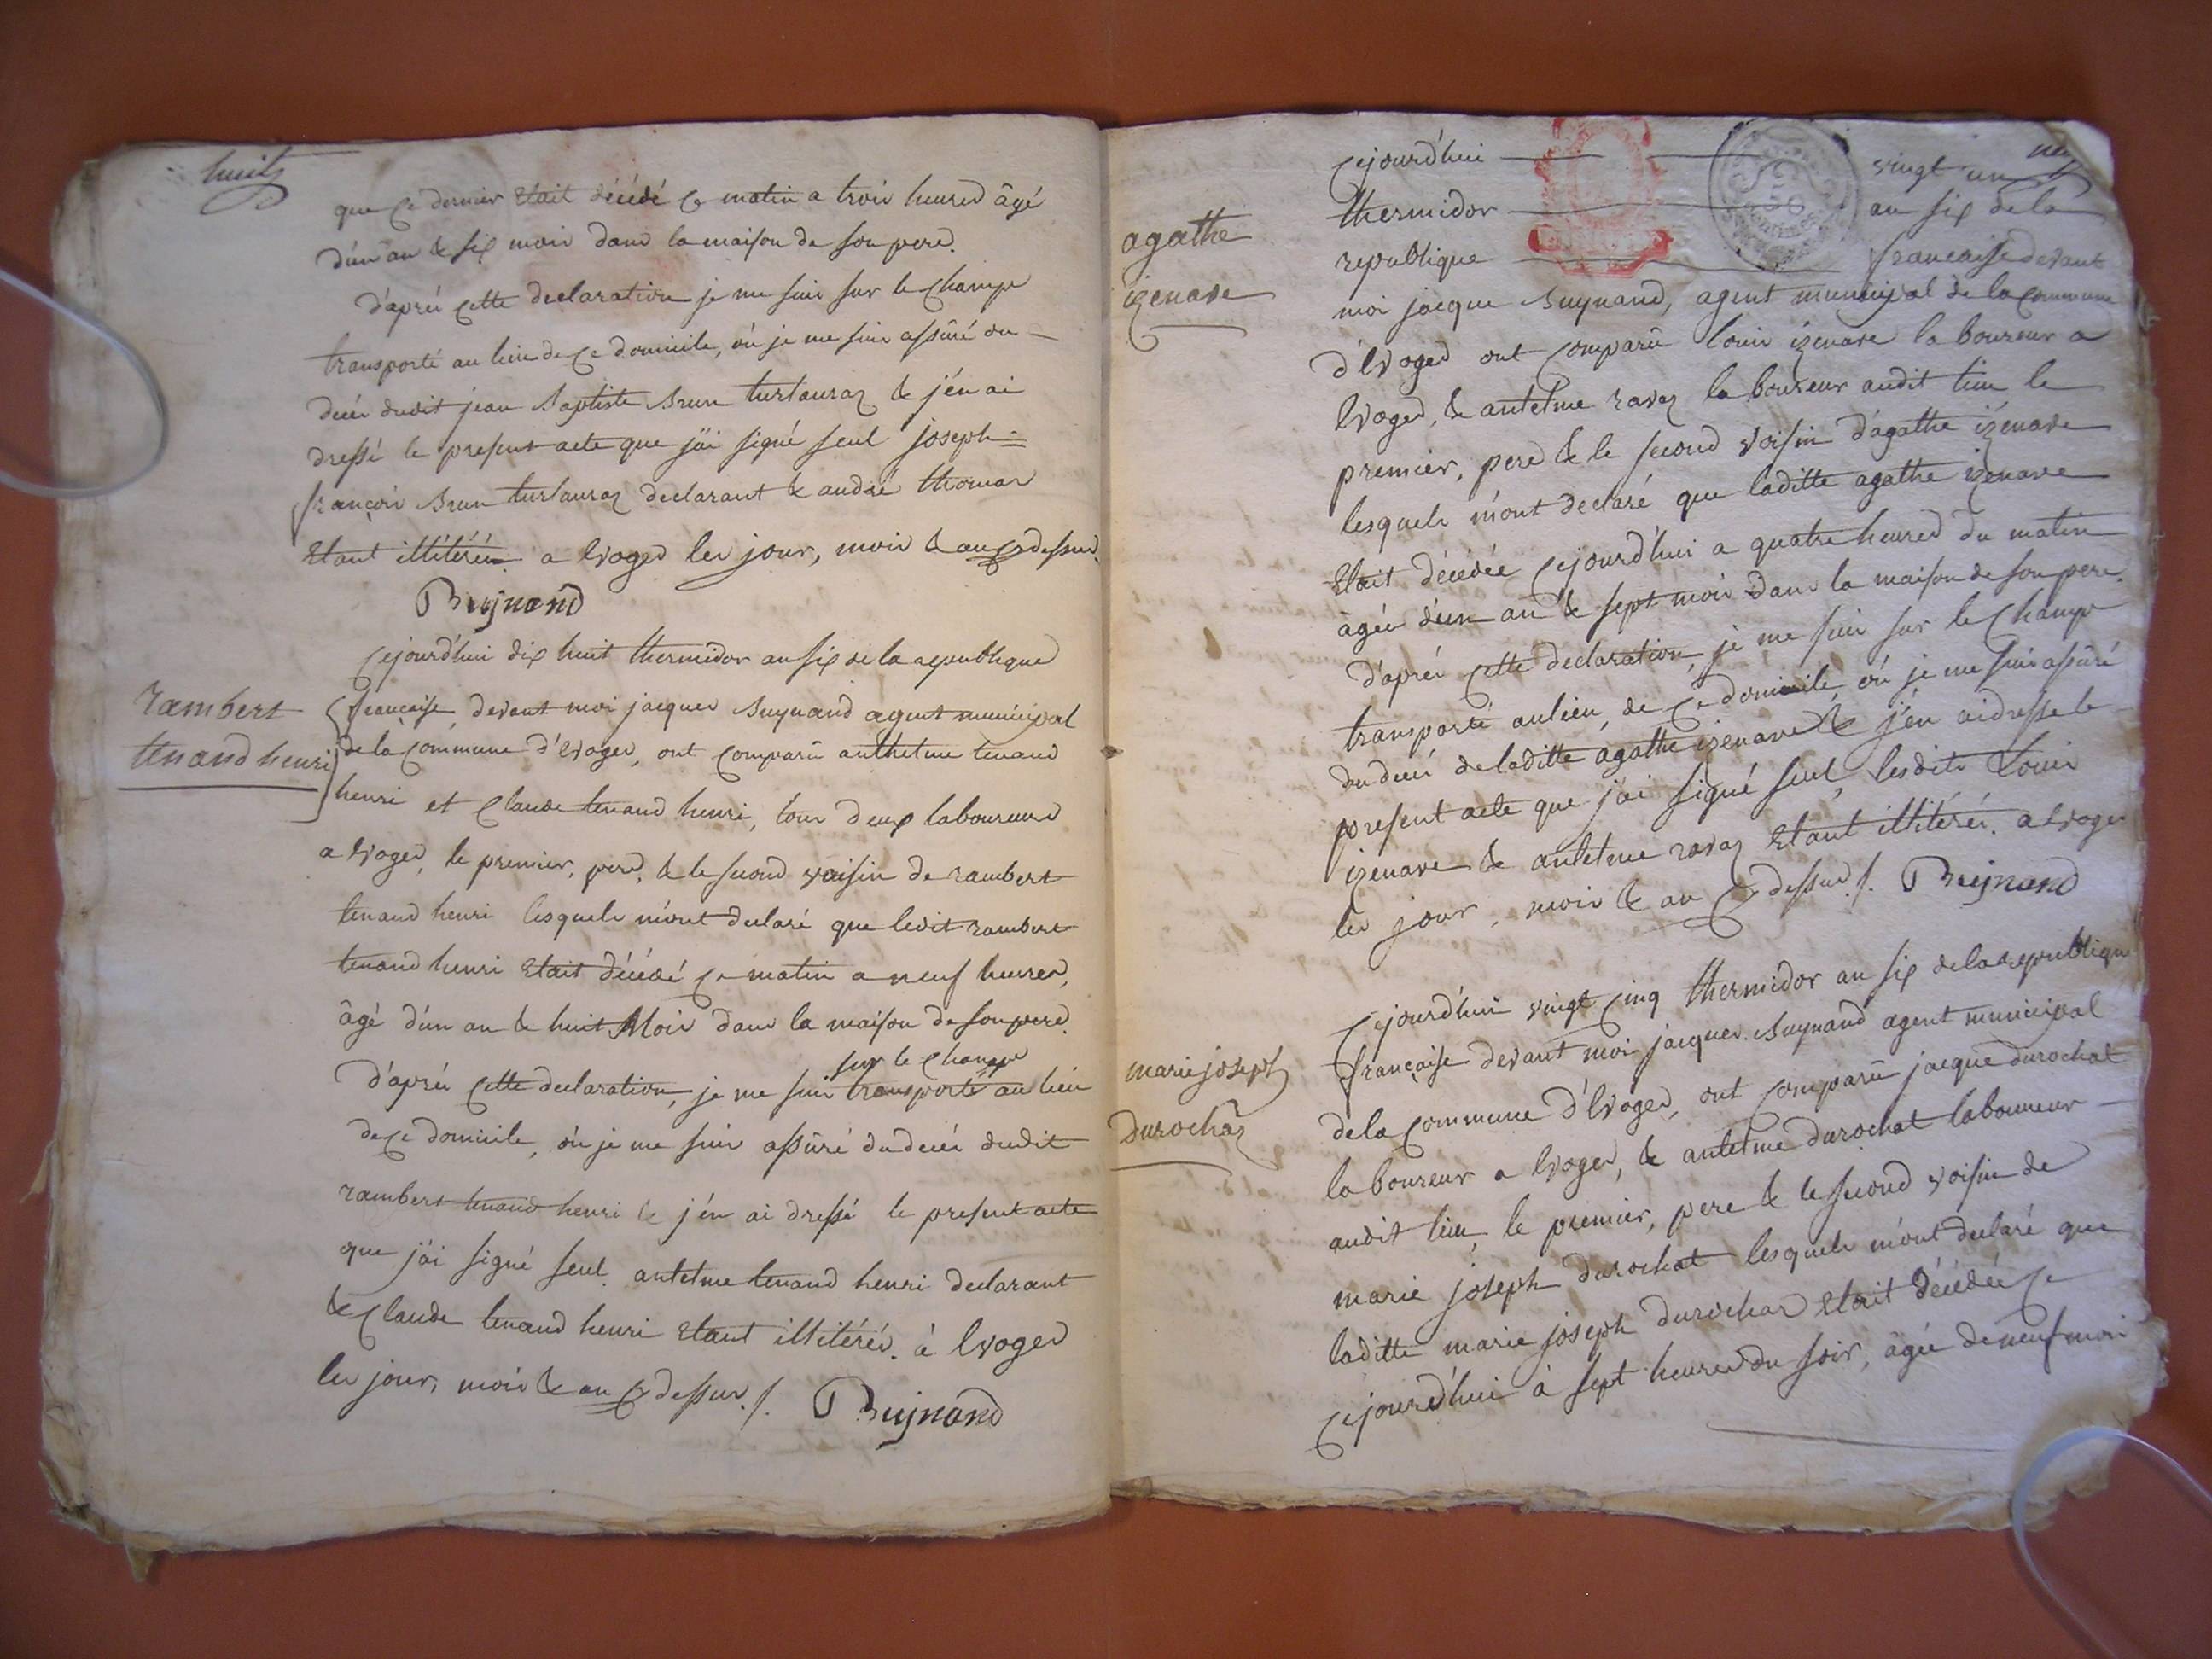 huit
que ce dernier Etait décédé ce matin a trois heures âgé
d'un an & six mois dans la maison de son pere.
d'aprés cette declaration je me suis sur le champ
transporté au lieu de ce domicile, où je me suis assûré du
decés dudit jean Baptiste Brun turlauraz & j'en ai
dressé le present acte que j'ai signé seul joseph
françois Brun turlauraz declarant & andré thomas
Etant illitérés a Evoges les jour, mois & an cy dessus.
Bujnand
cejourd'hui dix huit thermidor an six de la republique
rambert
tenand henri
francaise, devant moi jacques Buynand agent municipal
de la commune d'Evoges, ont comparû anthelme tenand
henri et claude tenand henri, tous deux laboureurs
a Evoges, le premier, pere, & le second voisin de rambert
tenand henri lesquels m'ont declaré que ledit rambert
tenand henri Etait décédé ce matin a neuf heures,
âgé d'un an & huit Mois dans la maison de son pere.
sur le champ
d'aprés cette declaration, je me suis transporté au lieu
de ce domicile, où je me suis assûré du decés dudit
rambert tenand henri & j'en ai dressé le present acte
que j'ai signé seul. antelme tenand henri declarant
& claude tenand henri Etant illitérés. à Evoges
les jour, mois & an cy dessus ./. Bujnand
cejourd'hui vingt un
thermidor an six de la
agathe
izenave
republique francaise devant
moi jacque Buynand, agent municipal de la commune
d'Evoges ont comparû louis izenave laboureur a
Evoges, & antelme ravaz laboureur audit lieu le
premier, pere & le second voisin d'agathe izenave
lesquels m'ont declaré que laditte agathe izenave
Etait décédée cejourd'hui a quatre heures du matin
âgée d'un an & sept mois dans la maison de son pere.
d'aprés cette declaration, je me suis sur le champ
transporté au lieu, de ce domicile, où je me suis assûré
du decés de laditte agathe izenave & j'en ai dressé le
present acte que j'ai signé seul, lesdits Louis
izenave & antelme ravaz Etant illitérés. a Evoges
les jour, mois & an cy dessus ./. Bujnand
cejourd'hui vingt cinq thermidor an six de la republique
marie joseph
durochaz
française devant moi jacques Buynand agent municipal
de la commune d'Evoges, ont comparû jacque durochat
laboureur a Evoges, & antelme durochat laboureur
audit lieu, le premier, pere & le second voisin de
marie joseph durochat lesquels m'ont declaré que
laditte marie joseph durochaz Etait décédée ce
cejourd'hui à sept heures du soir, âgée de neuf mois